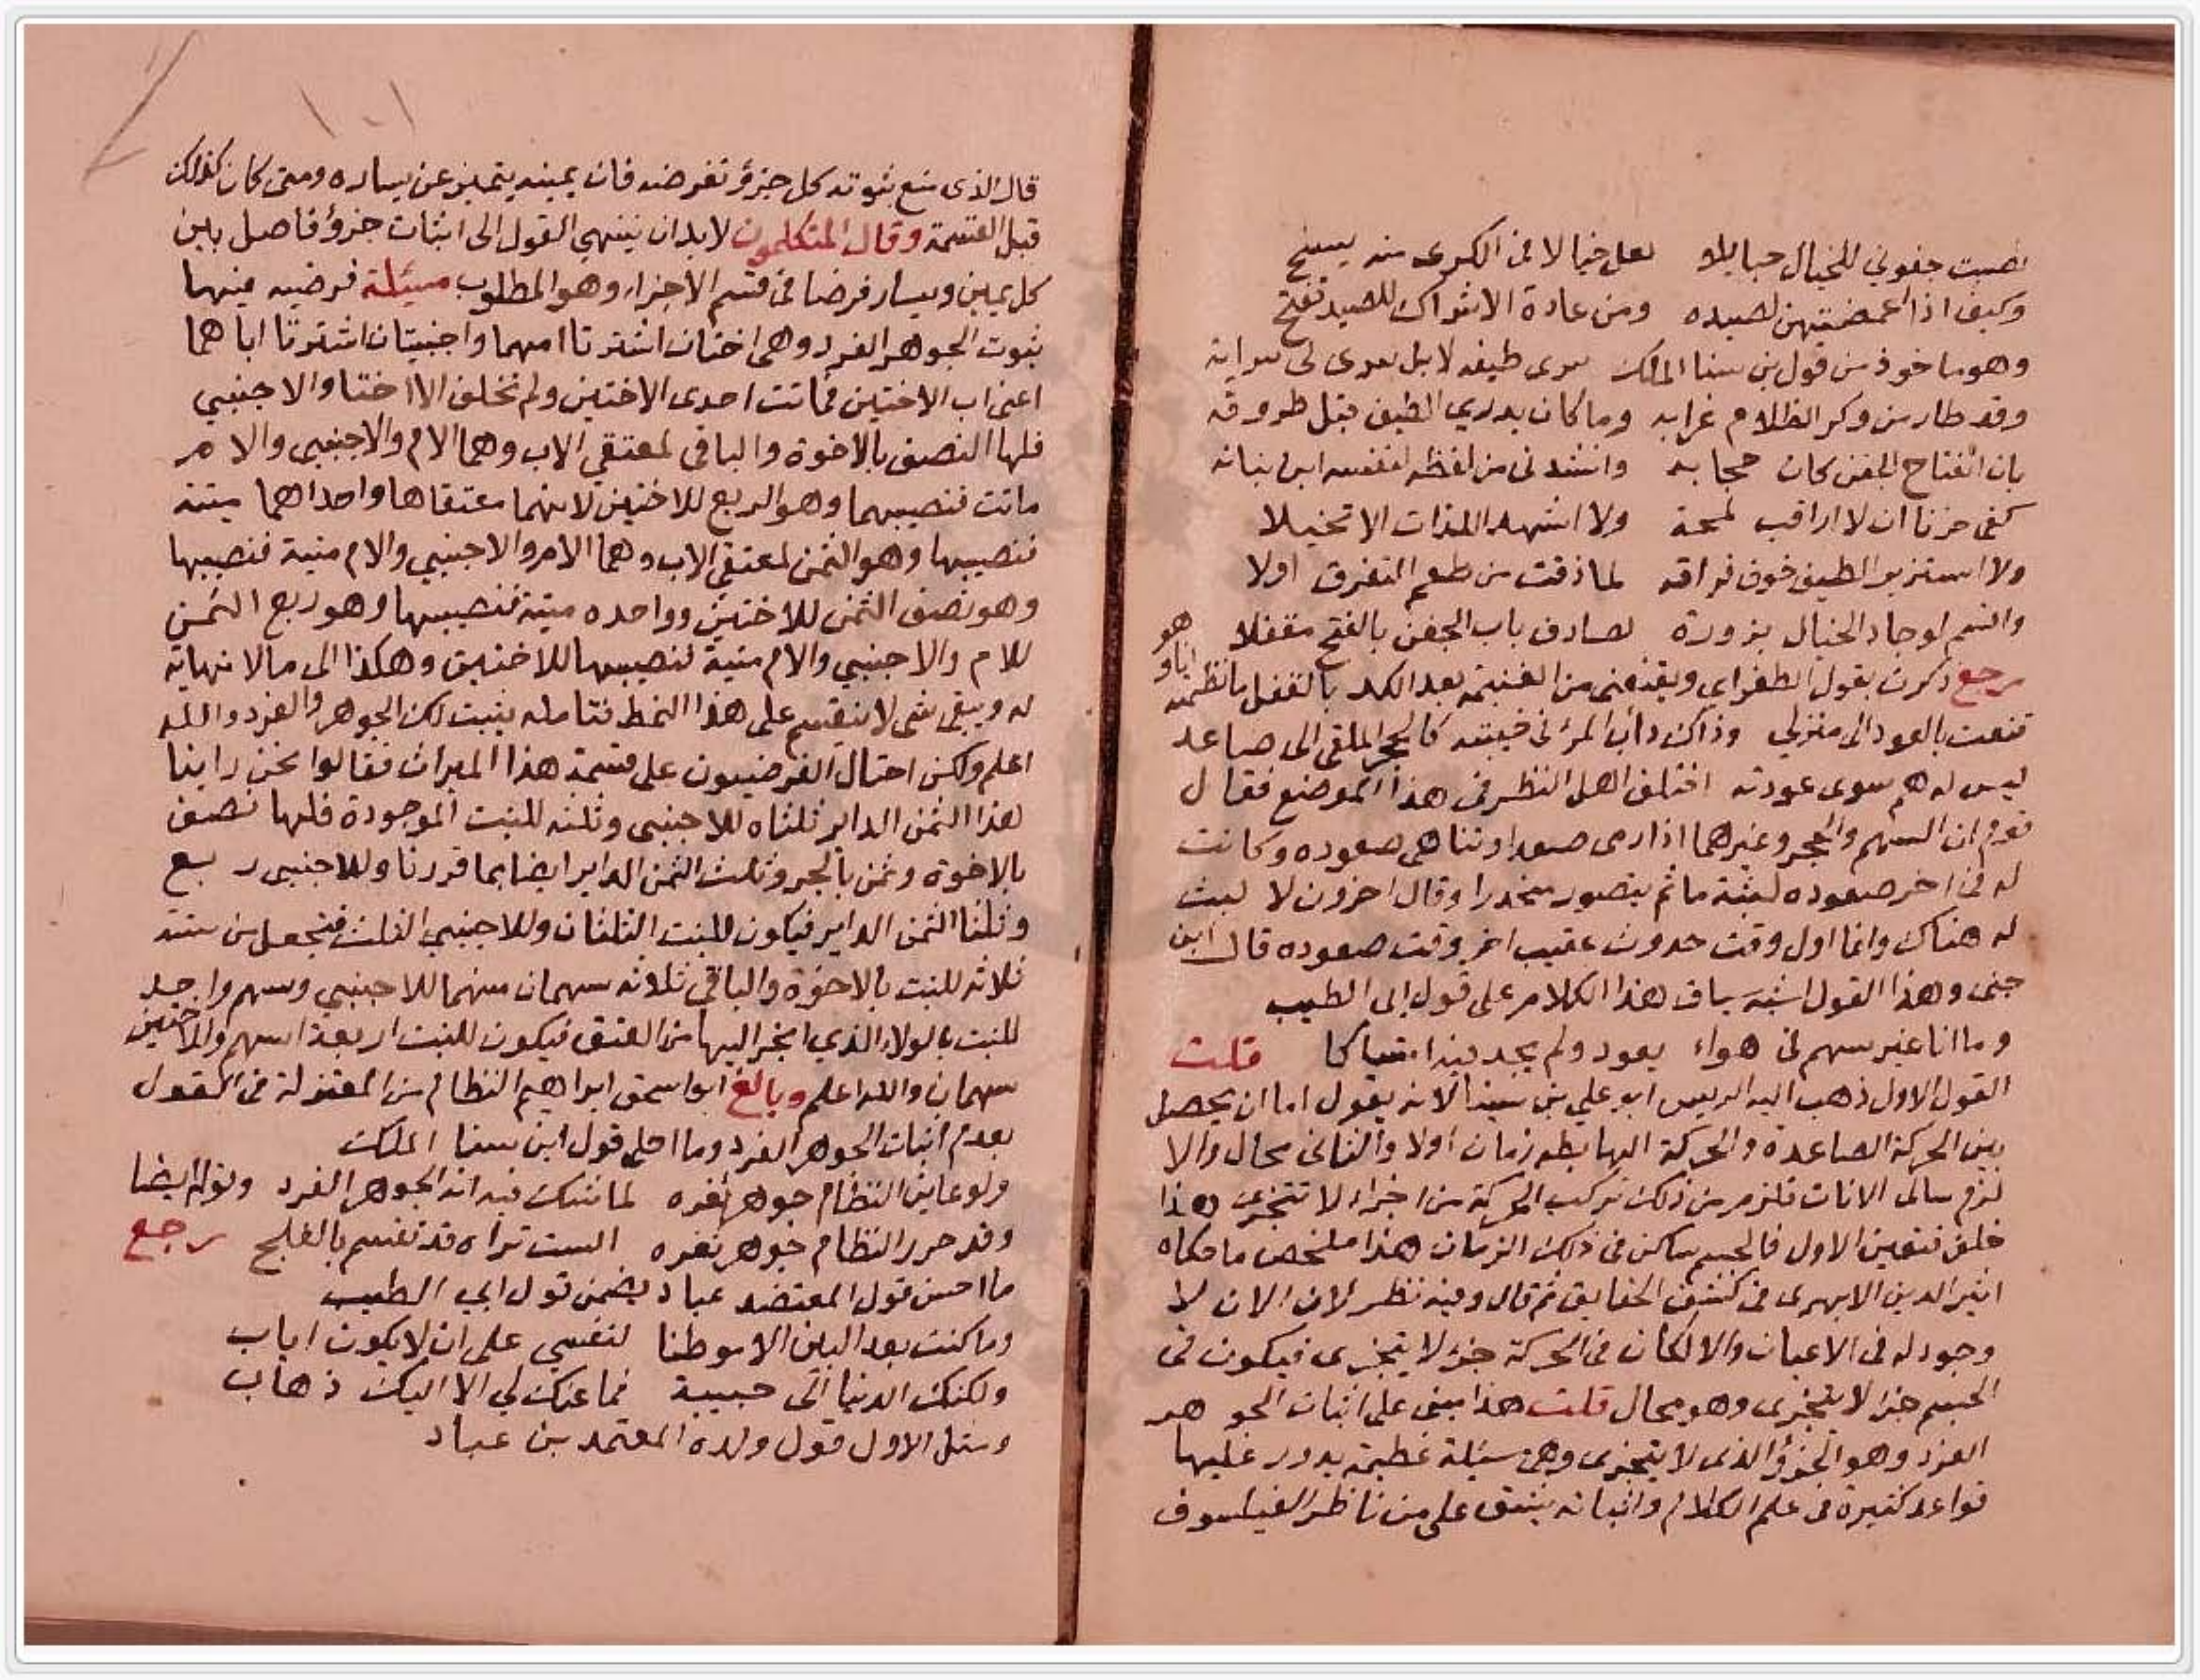 نصبت جفوني للخيال حبايلا لعل خيالا في الكرى منه يسنح
وكيف اذا اغمضتهن لصيده ومن عادة الاشراك للصيد تفتح
وهو ماخوذ من قول بن سنا الملك سرى طيفه لا بل سرى لى سرابه
وقد طار من وكر الظلام غرابه وما كان يدري الطيف قبل طروقه
بان انفتاح الجفن كان حجابه وانشدنى من لفظه لنفسه ابن نباته
كفى حزنا ان لا اراقب لمحة ولا اشهد اللذات الا تخيلا
ولا استزير الطيف خوف فراقه لما ذقت من طعم التفرق اولا
واقسم لو جاد الخيال بزورة لصادف باب الجفن بالفتح مقفلا
رجع ذكرت بقول الطغراى ويقنعنى من الغنيمة بعد الكد بالقفل ما نظمته
هو اناو
قنعت بالعود الى منزلي وذاك داب المرء فى خيبته كالحجر الملقى الى صاعد
ليس له هم سوى عودته اختلف اهل النظر فى هذا الموضع فقال
قوم ان السهم والحجر وغيرهما اذا رمى صعدا وتناهى صعوده وكانت
له فى اخر صعوده لبثة ما ثم يتصور منحدرا وقال اخرون لا لبث
له هناك وانما اول وقت حدوث عقيب اخر وقت صعوده قال ابن
جنى وهذا القول اشبه ساق هذا الكلام على قول ابى الطيب
وما انا غير سهم فى هواء يعود ولم يجد فيه امتساكا قلت
القول الاول ذهب اليه الريس ابو على بن سينا لانه يقول اما ان يحصل
بين الحركة الصاعدة والحركة الهابطه زمان اولا والثانى محال والا
لزم تتالى الانات فلزم من ذلك تركب الحركة من اجزاء لا تتجزى هذا
خلف فتعين الاول فالجسم ساكن فى ذلك الزمان هذا ملخص ما حكاه
اثير الدين الابهرى فى كشف الحقايق ثم قال وفيه نظر لان الان لا
وجود له فى الاعيان والا لكان فى الحركة جزء لا يتجزى فيكون فى
الجسم جزء لا يتجزى وهو محال قلت هذا يبنى على اثبات الجو هر
الفرد وهو الجزؤ الذى لا يتجزى وهى مسئلة عظيمة يدور عليها
قواعد كثيرة فى علم الكلام واثباته يشق على من ناظر الفيلسوف
قال الذى منع ثبوته كل جزؤ تفرضه فان يمينه يتميز عن يساره ومتى كان كذلك
قبل القسمة وقال المتكلمون لا بد ان ينتهي القول الى اثبات جزؤ فاصل باين
كل يمين ويسار فرضا فى قسم الاجزاء وهو المطلوب مسئلة فرضيه فيها
ثبوت الجوهر الفرد وهى اختان اشترتا امهما واجنبيتان اشترتا اباهما
اعنى اب الاختين فماتت احدى الاختين ولم تخلف الا اختا والاجنبي
فلها النصف بالاخوة والباقى لمعتقي الاب وهما الام والاجنبى والام
ماتت فنصيبهما وهو الربع للاختين لانهما معتقاها واحداهما ميتة
فنصيبها وهو الثمن لمعتقي الاب وهما الام والاجنبي والام ميتة فنصيبها
وهو نصف الثمن للاختين وواحده ميتة فنصيبها وهو ربع الثمن
للام والاجنبي والام ميتة فنصيبها للاختين وهكذا الى مالا نهاية
له ويبقى شى لا ينقسم على هذا النمط فتامله يثبت لك الجوهر والفرد والله
اعلم ولكن احتال الفرضيون على قسمة هذا الميراث فقالوا نحن راينا
هذا الثمن الداير ثلثاه للاجنبى وثلثه للبنت الموجودة فلها نصف
بالاخوة وثمن بالجر وثلث الثمن الداير ايضا بما قررنا وللاجنبى ربع
وثلثا الثمن الداير فيكون للبنت الثلثان وللاجنبي الثلث فتجعل من ستة
ثلاثة للبنت بالاخوة والباقي ثلاثه سهمان منهما للاجنبي وسهم واحد
للبنت بالولاء الذي انجر اليها من العتق فيكون للبنت اربعة اسهم وللاجنبي
سهمان والله اعلم وبالغ ابو اسحق ابراهيم النظام من المعتزلة فى القول
بعدم اثبات الجوهر الفرد وما احلى قول ابن سنا الملك
ولو عاين النظام جوهر ثغره لما شك فيه انه الجوهر الفرد وقوله ايضا
وقد حرر النظام جوهر ثغره الست تراه قد تقسم بالفلج رجع
ما احسن قول المعتضد عباد يضمن قول ابي الطيب
وما كنت بعد البين الا موطنا لنفسي على ان لا يكون اياب
ولكنك الدنيا الى حبيبة فما عنك لي الا اليك ذهاب
ومثل الاول قول ولده المعتمد بن عباد